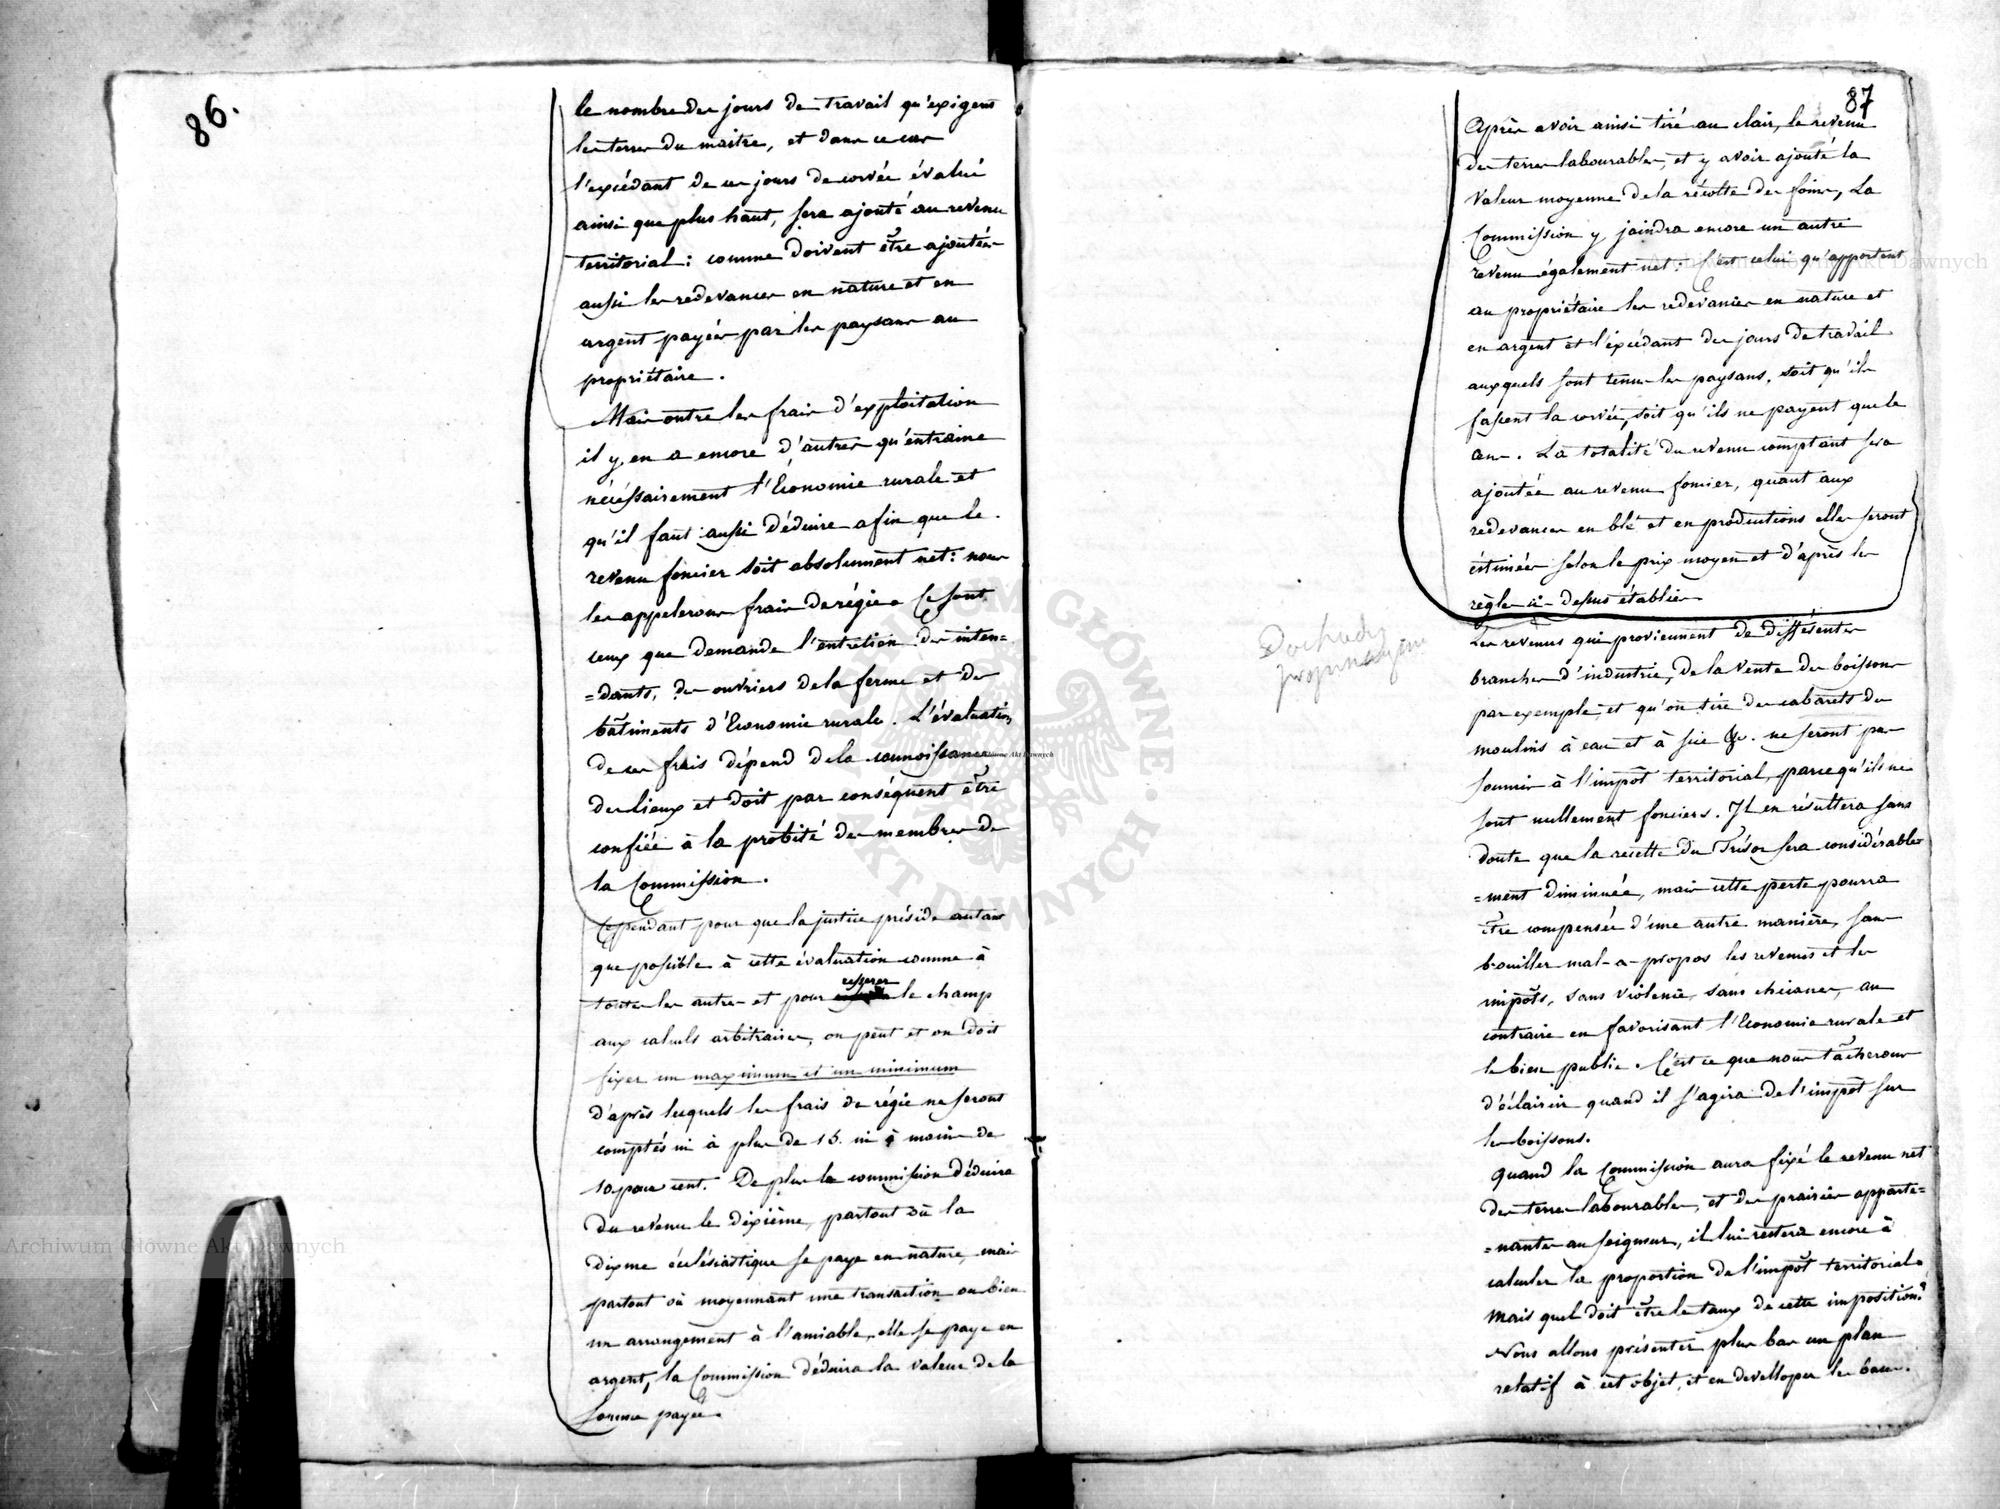 86.
le nombre des jours de travail qu'exigent
les terres du maître, et dans ce cas
l'excédant de ces jours de corvée évalué
ainsi que plus haut, sera ajouté au revenu
territorial: comme doivent être ajoutées
aussi les redevances en nature et en
argent payées par les paysans au
propriétaire.
Mais outre les frais d'exploitation
il y en a encore d'autres qu'entraine
nécéssairement l'Economie rurale et
qu'il faut aussi déduire afin que le
revenu foncier soit absolument net: nous
les appelerons frais de régie. Ce sont
ceux que demande l'entretien des inten=
=dants, des ouvriers de la ferme et des
bâtiments d'Economie rurale. L'évaluation
de ces frais dépend de la connoissance
des lieux et doit par conséquent être
confiée à la probité des membres de
la Commission.
Cependant pour que la justice préside autant
que possible à cette évaluation comme à
resserer
toutes les autres et pour le champ
aux calculs arbitraires, on peut et on doit
fixer un maximum et un minimum
d'après lesquels les frais de régie ne seront
comptés ni à plus de 15. ni à moins de
10 pour cent. De plus la commission déduira
du revenu le dixième, partout où la
dixme écclésiastique se paye en nature, mais
partout où moyennant une transaction ou bien
un arrangement à l'amiable, elle se paye en
argent, la Commission déduira la valeur de la
somme payée.
87
Après avoir ainsi tiré au clair, le revenu
des terres labourables, et y avoir ajouté la
valeur moyenne de la récolte des foins, La
Commission y joindra encore un autre
revenu également net: C'est celui qu'apportent
au propriétaire les redevances en nature et
en argent et l'éxcédant des jours de travail
auxquels sont tenus les paysans, soit qu'ils
fassent la corvée, soit qu'ils ne payent que le
cens. La totalité du revenu comptant sera
ajoutée au revenu foncier, quant aux
redevances en blé et en productions elles seront
éstimées selon le prix moyen et d'après les
règles ci-dessus établies
Les revenus qui proviennent de différentes
branches d'industrie, de la vente des boissons
par exemple, et qu'on tire des cabarets des
moulins à eau et à scie &c. ne seront pas
soumis à l'impôt territorial, parce qu'ils ne
sont nullement fonciers. Il en résultera sans
doute que la recette du Trésor sera considérable=
=ment diminuée, mais cette perte pourra
être compensée d'une autre manière, sans
brouiller mal-a-propos les revenus et les
impôts, sans violence, sans chicanes, au
contraire en favorisant l'Economie rurale et
le bien public. C'est ce que nous tâcherons
d'éclaircir quand il s'agira de l'impôt sur
les boissons.
Quand la Commission aura fixé le revenu net
des terres labourables, et des prairies apparte=
=nantes au seigneur, il lui restera encore à
calculer la proportion de l'impôt territorial.
Mais quel doit être le taux de cette imposition?
Nous allons présenter plus bas un plan
relatif à cet objet, et en developper les bases.
Dochody
propinacyine
Archiwum Główne Akt Dawnych
Archiwum Główne Akt Dawnych
ARCHIWUM GŁÓWNE AKT DAWNYCH